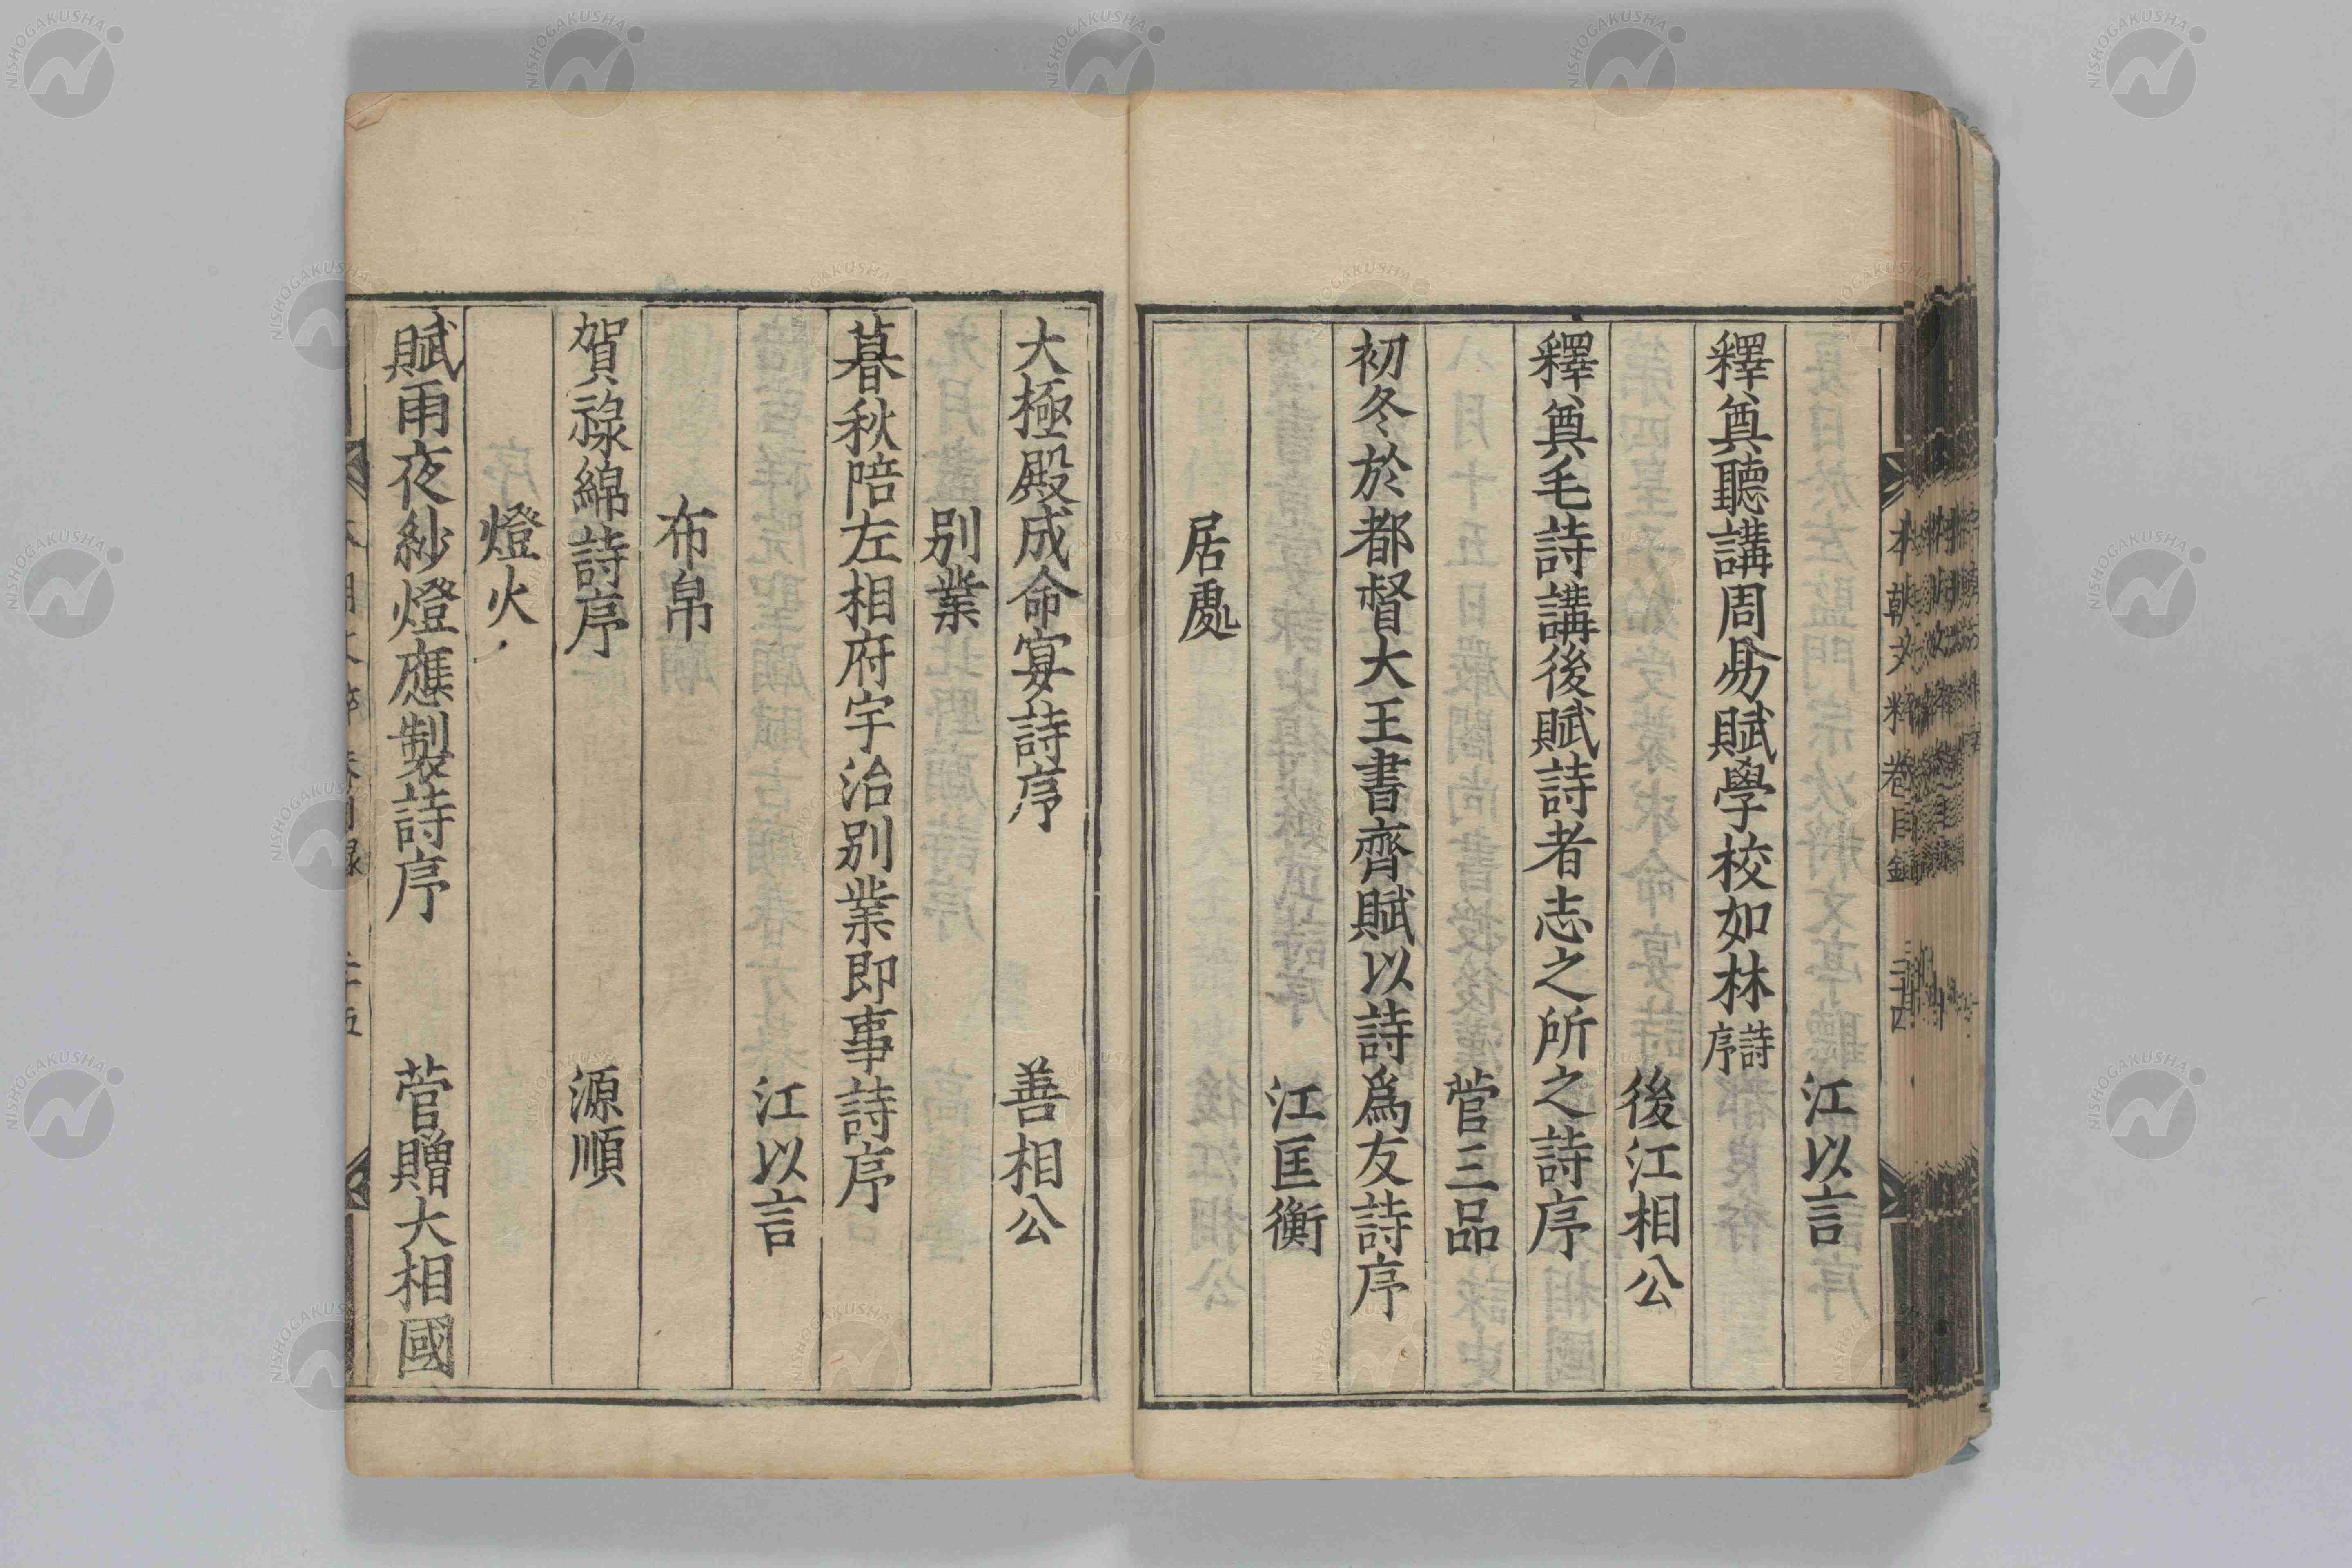 江以言
釋奠聽講周易賦學校如林詩序
後江相公
釋奠毛詩講後賦詩者志之所之詩序
菅三品
初冬於都督大王書齊賦以詩爲友詩序
江匡衡
居處
大極殿成命宴詩序 善相公
別業
暮秋陪左相府宇治別業即事詩序
江以言
布帛
賀祿綿詩序 源順
燈火
賦雨夜紗燈應製詩序 菅贈大相國
本朝文粹卷目録
NISHOGAKUSHA